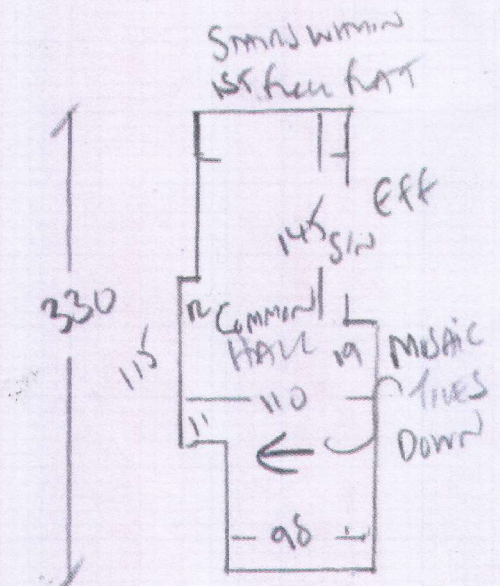 STAIRS WITHIN
1ST FLOOR FLAT
EFF
145
S/N
330
12
COMMON
HALL
19
MOSAIC
TILES
DOWN
115
110
11
98